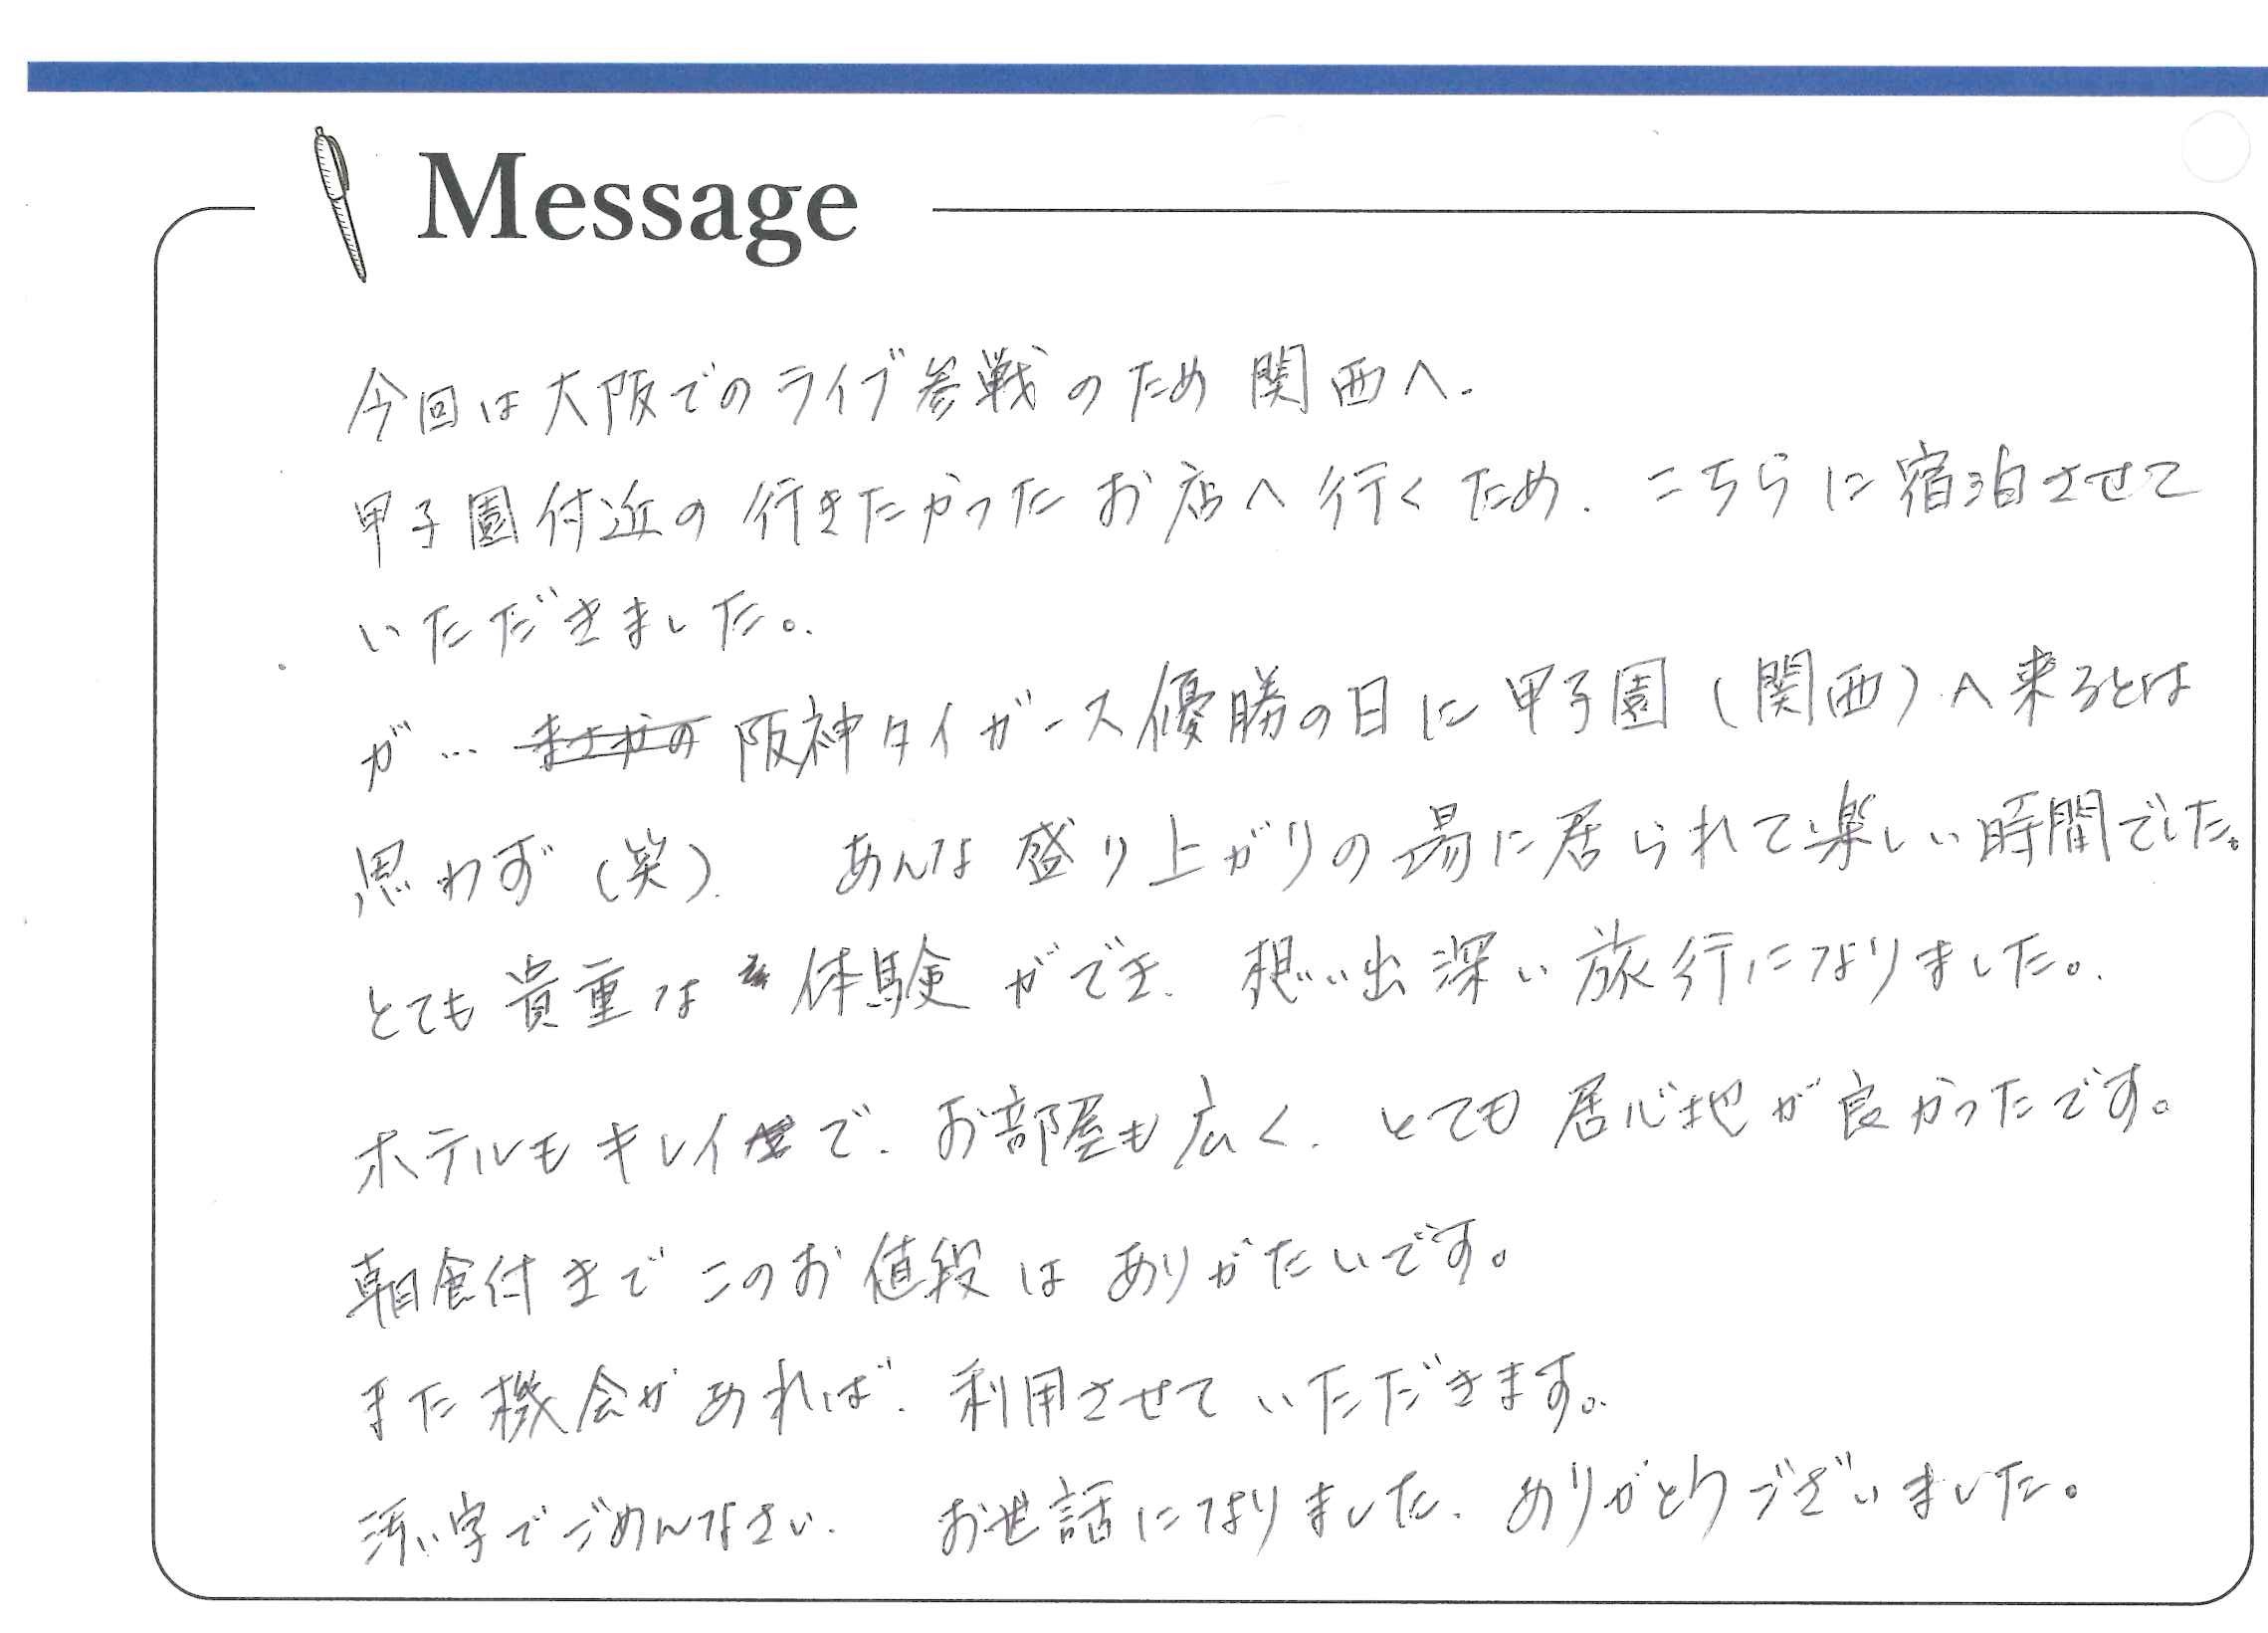 Message
今回は大阪でのライブ参戦のため関西へ.
甲子園付近の行きたかったお店へ行くため. こちらに宿泊させて
いただきました。
が… まさかの 阪神タイガース優勝の日に甲子園(関西)へ来るとは
思わず(笑). あんな盛り上がりの場に居られて楽しい時間でした。
とても貴重な体験ができ. 想い出深い旅行になりました。
ホテルもキレイで. お部屋も広く. とても居心地が良かったです。
朝食付きでこのお値段はありがたいです。
また機会があれば. 利用させていただきます。
汚い字でごめんなさい. お世話になりました. ありがとうございました。